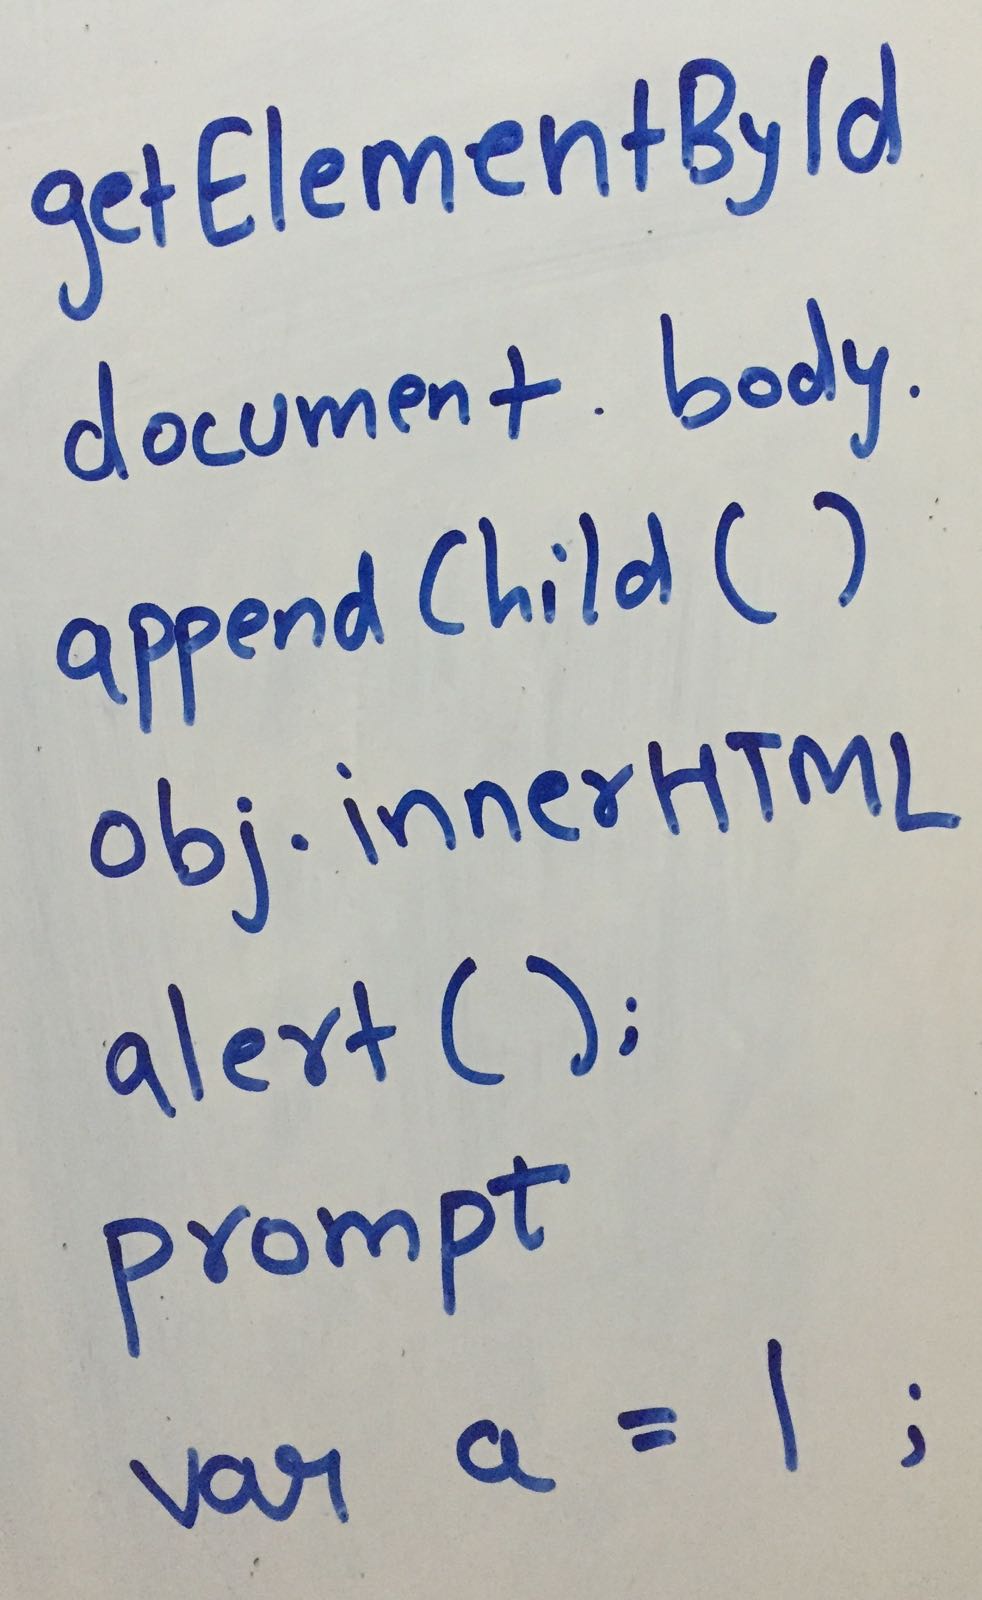 getElementById
document. body.
appendChild()
obj.innerHTML
alert();
prompt
var a = 1 ;